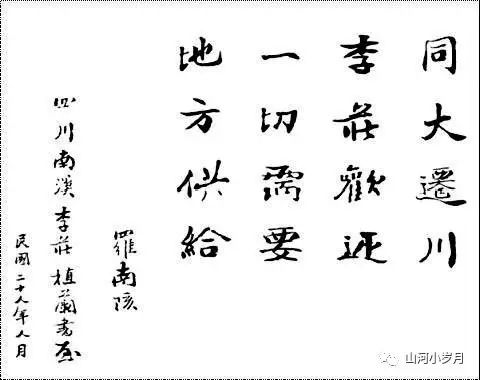 同大遷川
李莊歡迎
一切需要
地方供給
羅南陔
四川南溪李莊植蘭書屋
民國二十八年八月
山河小岁月